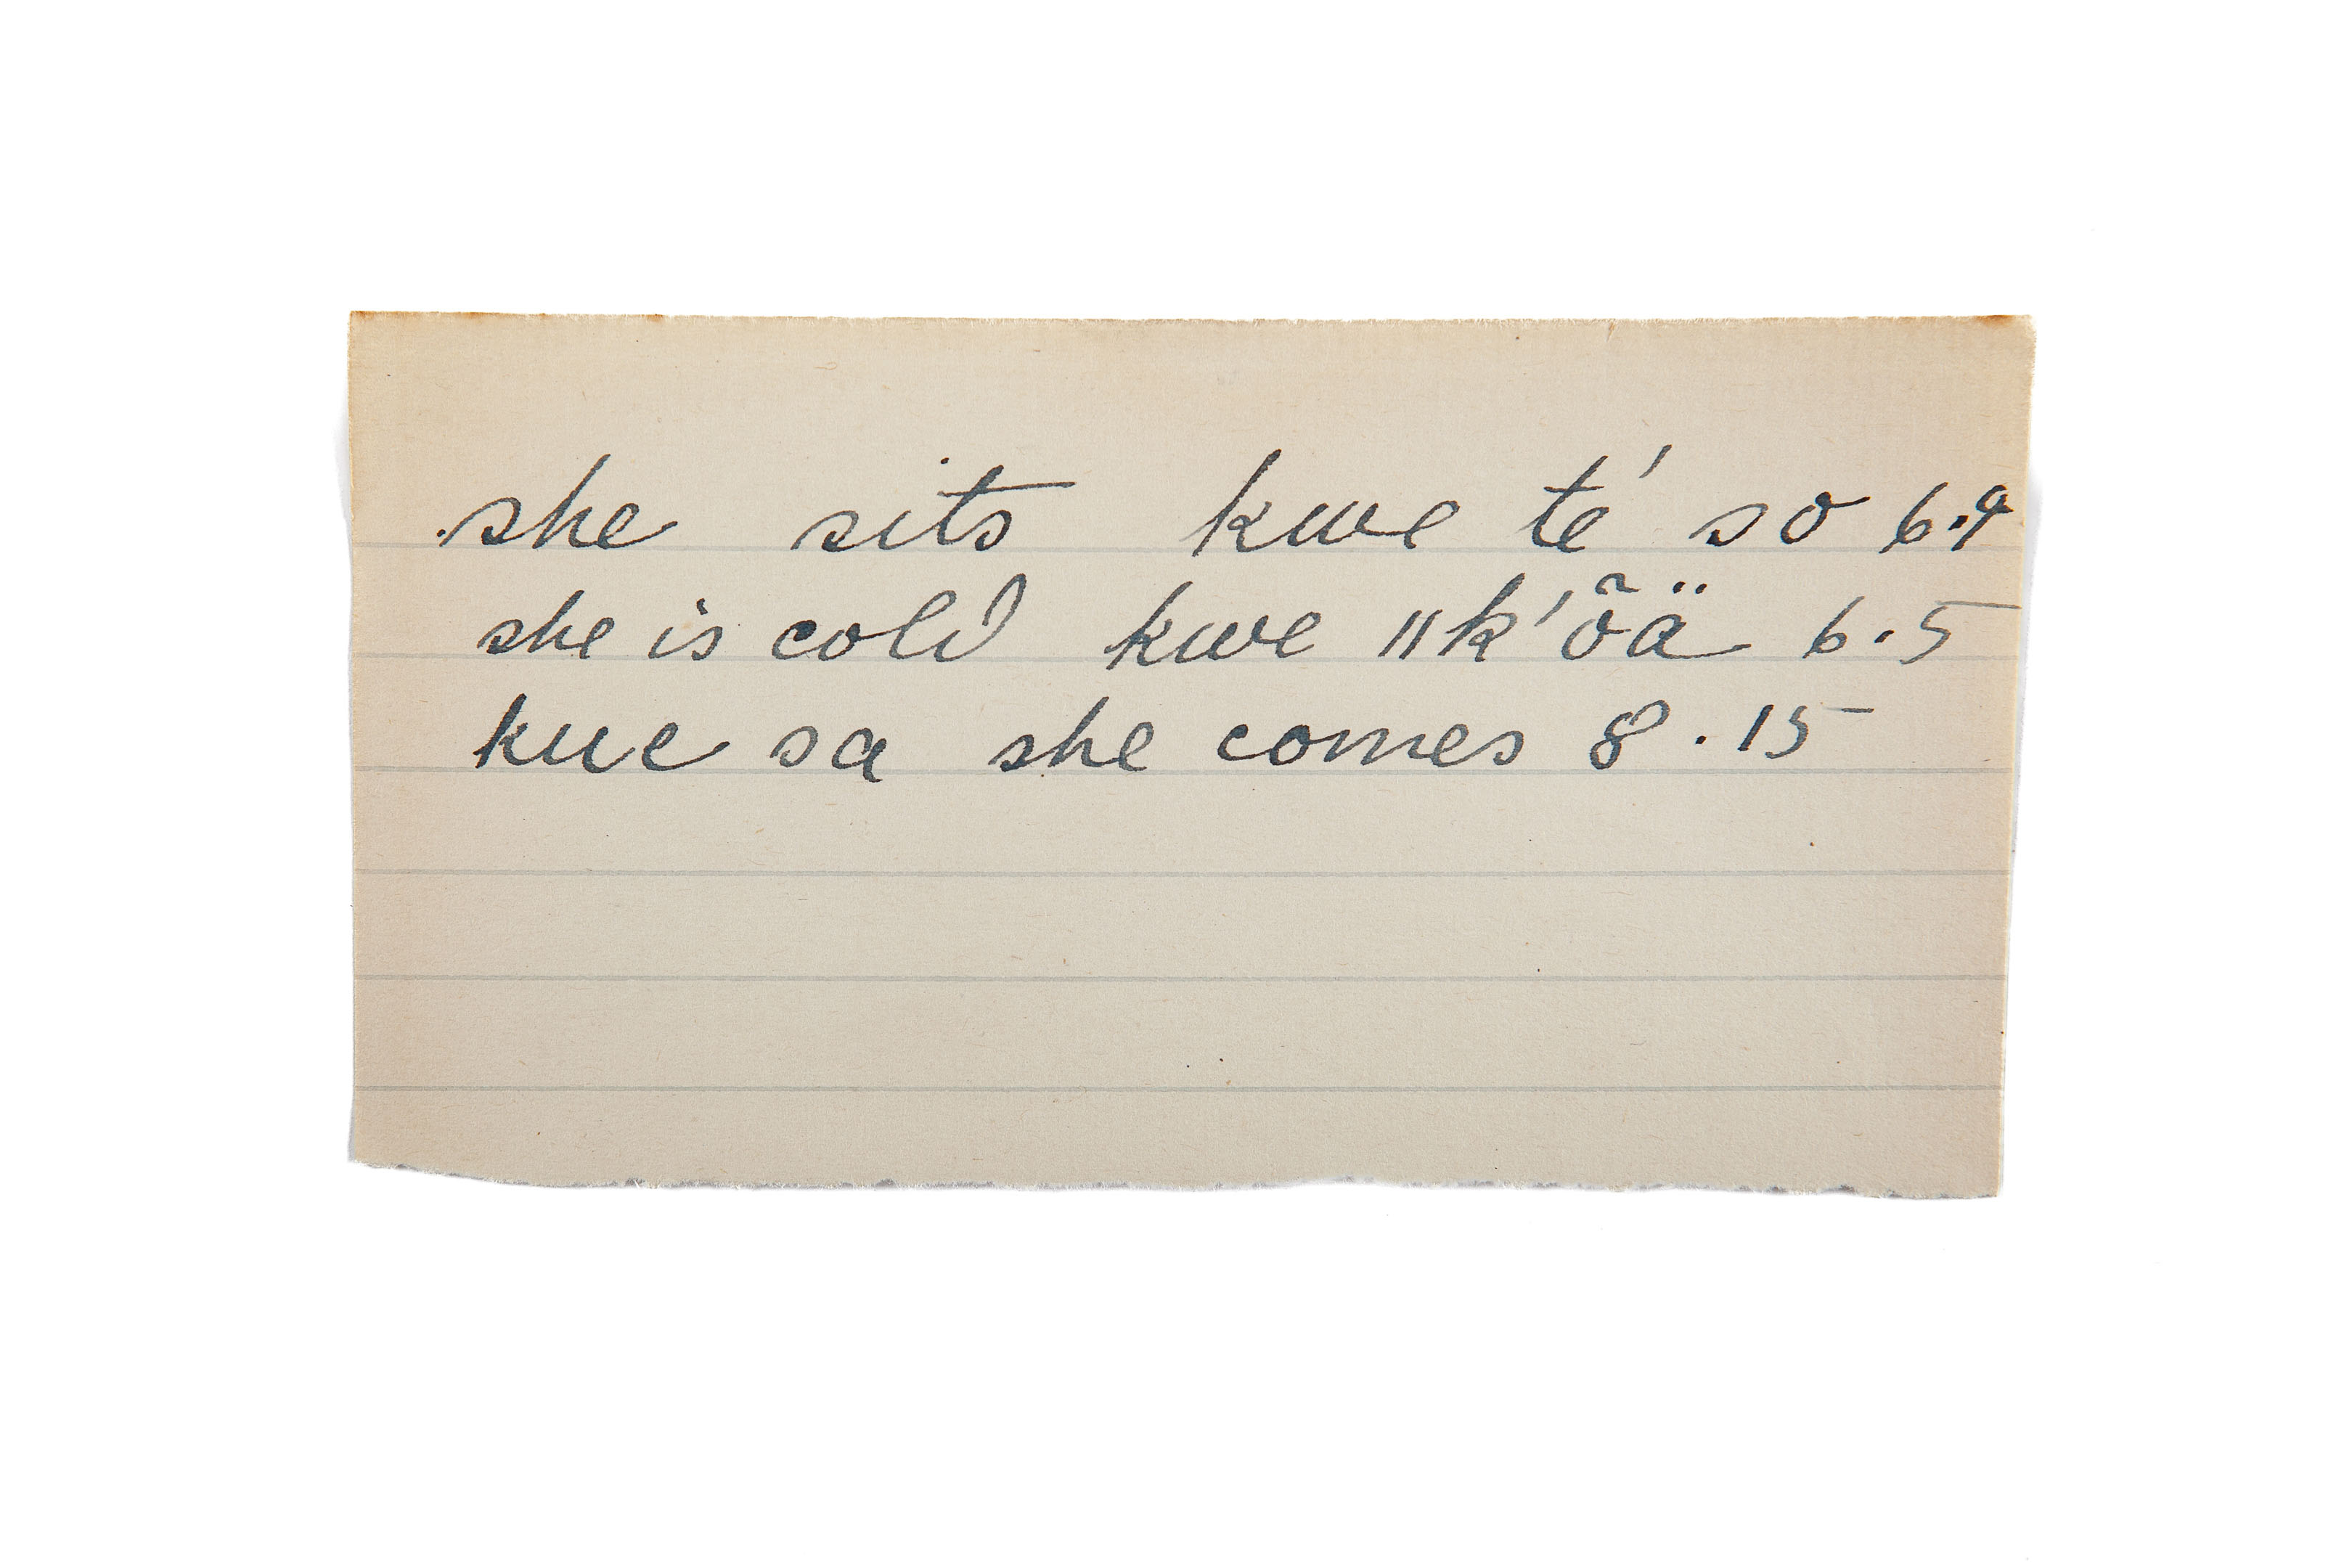 she sits kwe te' so 6.9
she is cold kwe ǁk'õä 6.5
kue sa she comes 8.15